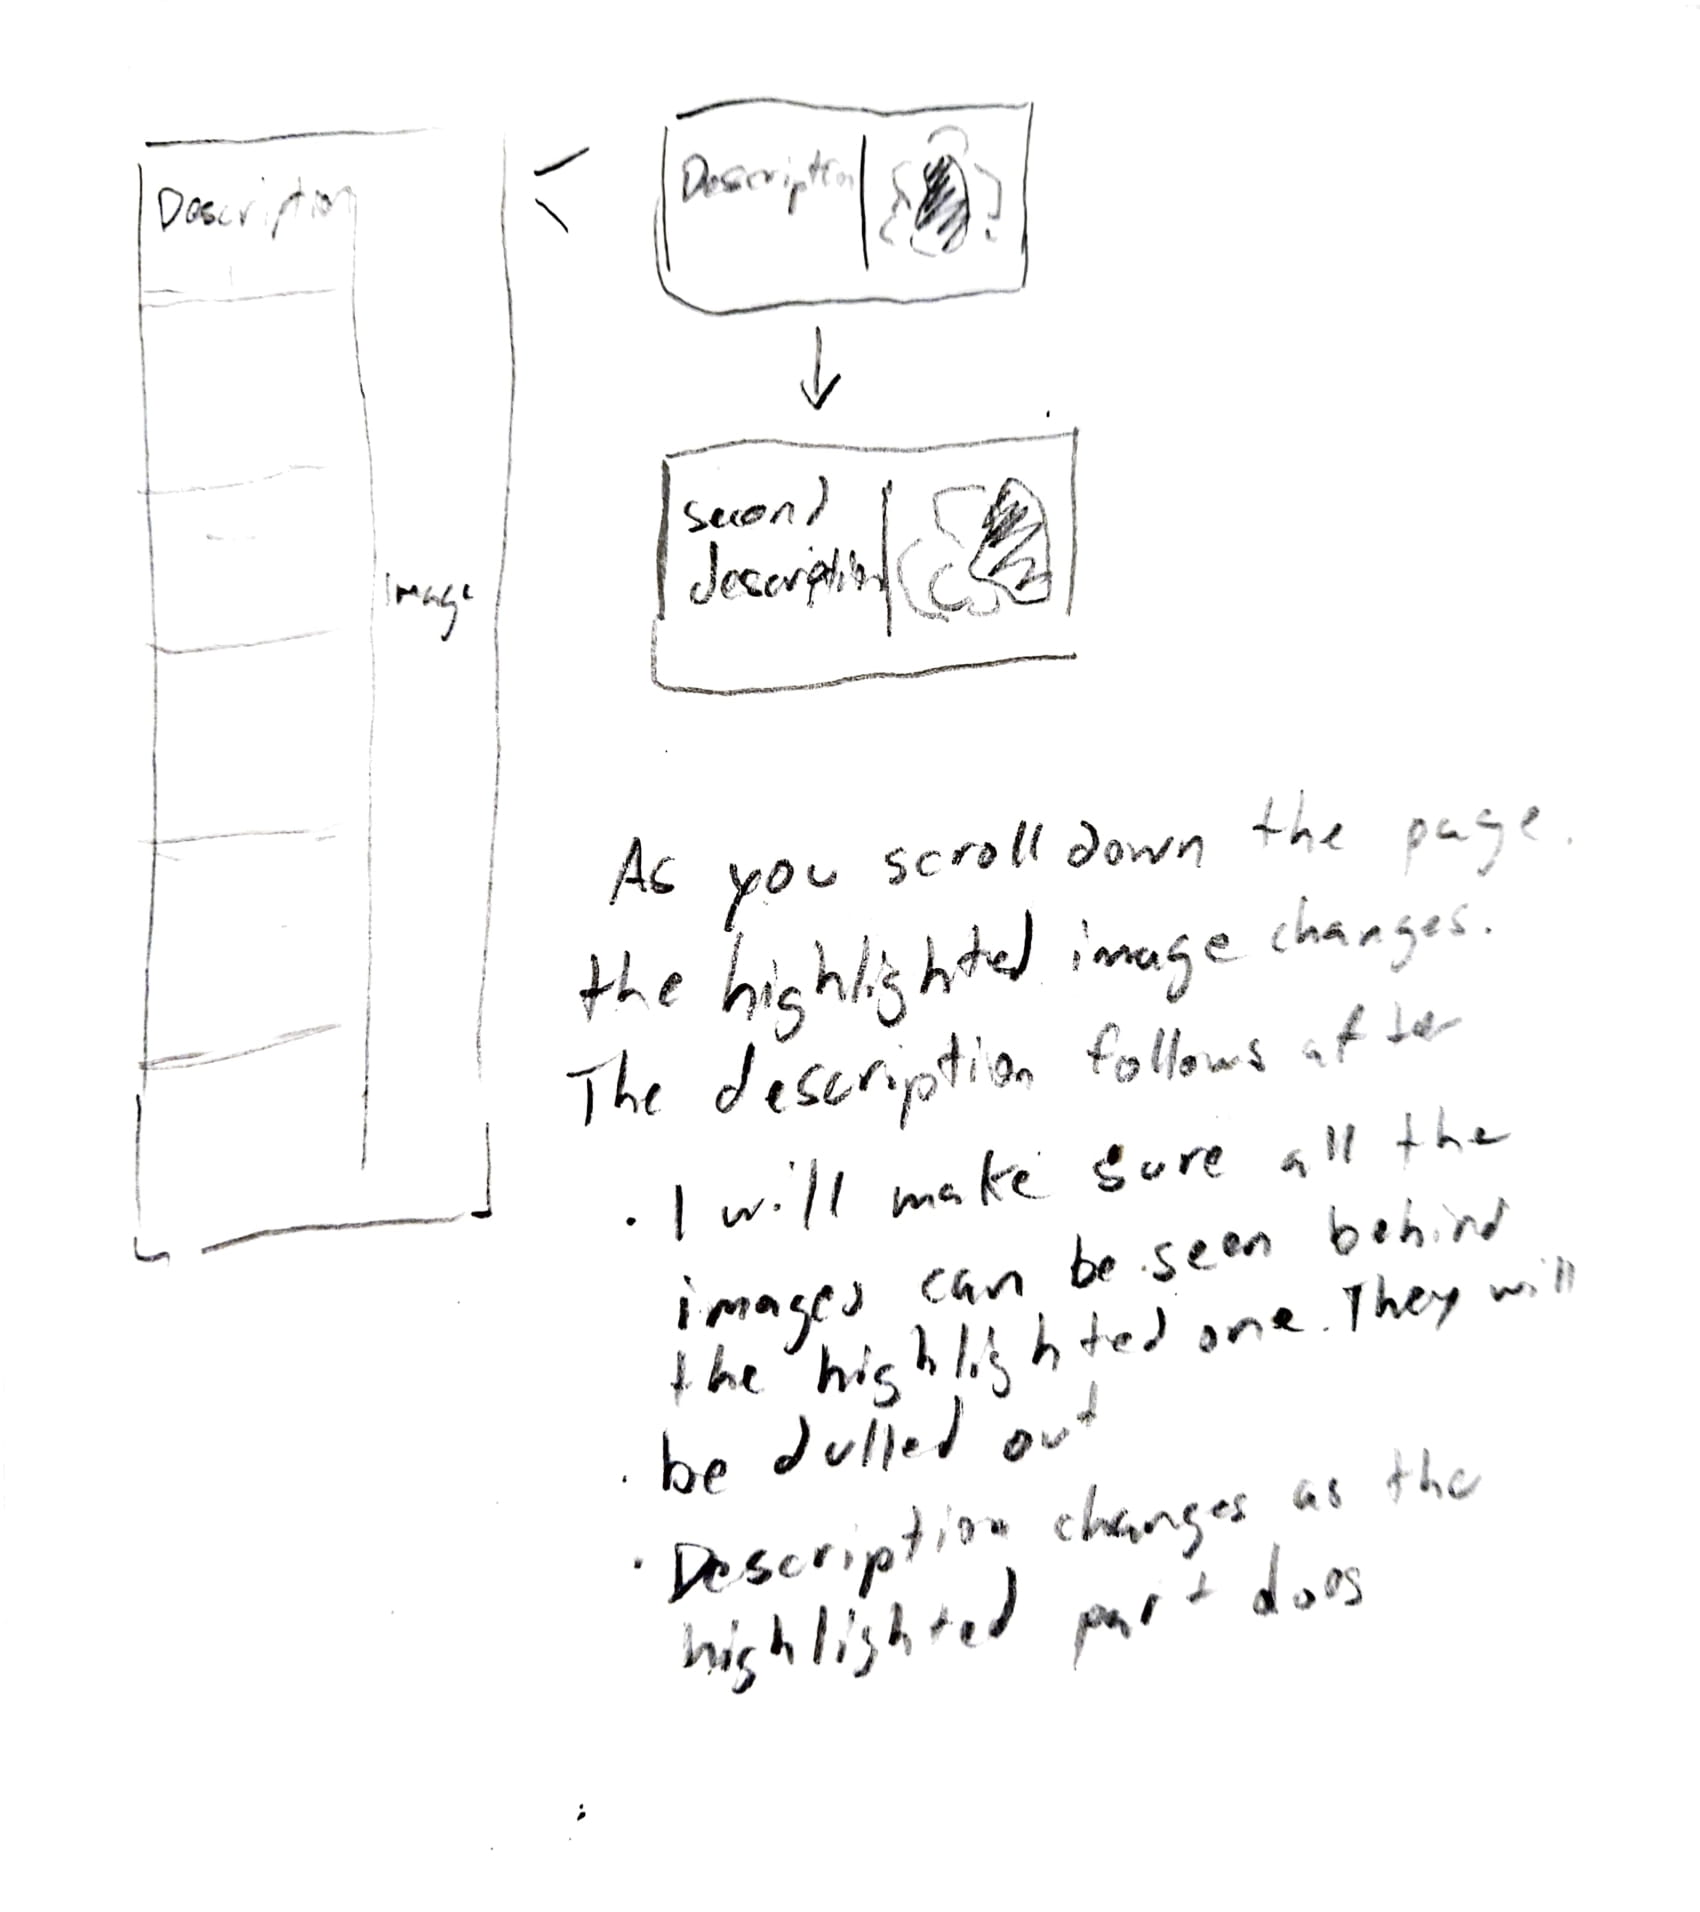 Description
Image
Description
second
description
As you scroll down the page.
the highlighted image changes.
The description follows after
· I will make sure all the
images can be seen behind
the highlighted one. They will
· be dulled out
· Description changes as the
highlighted part does